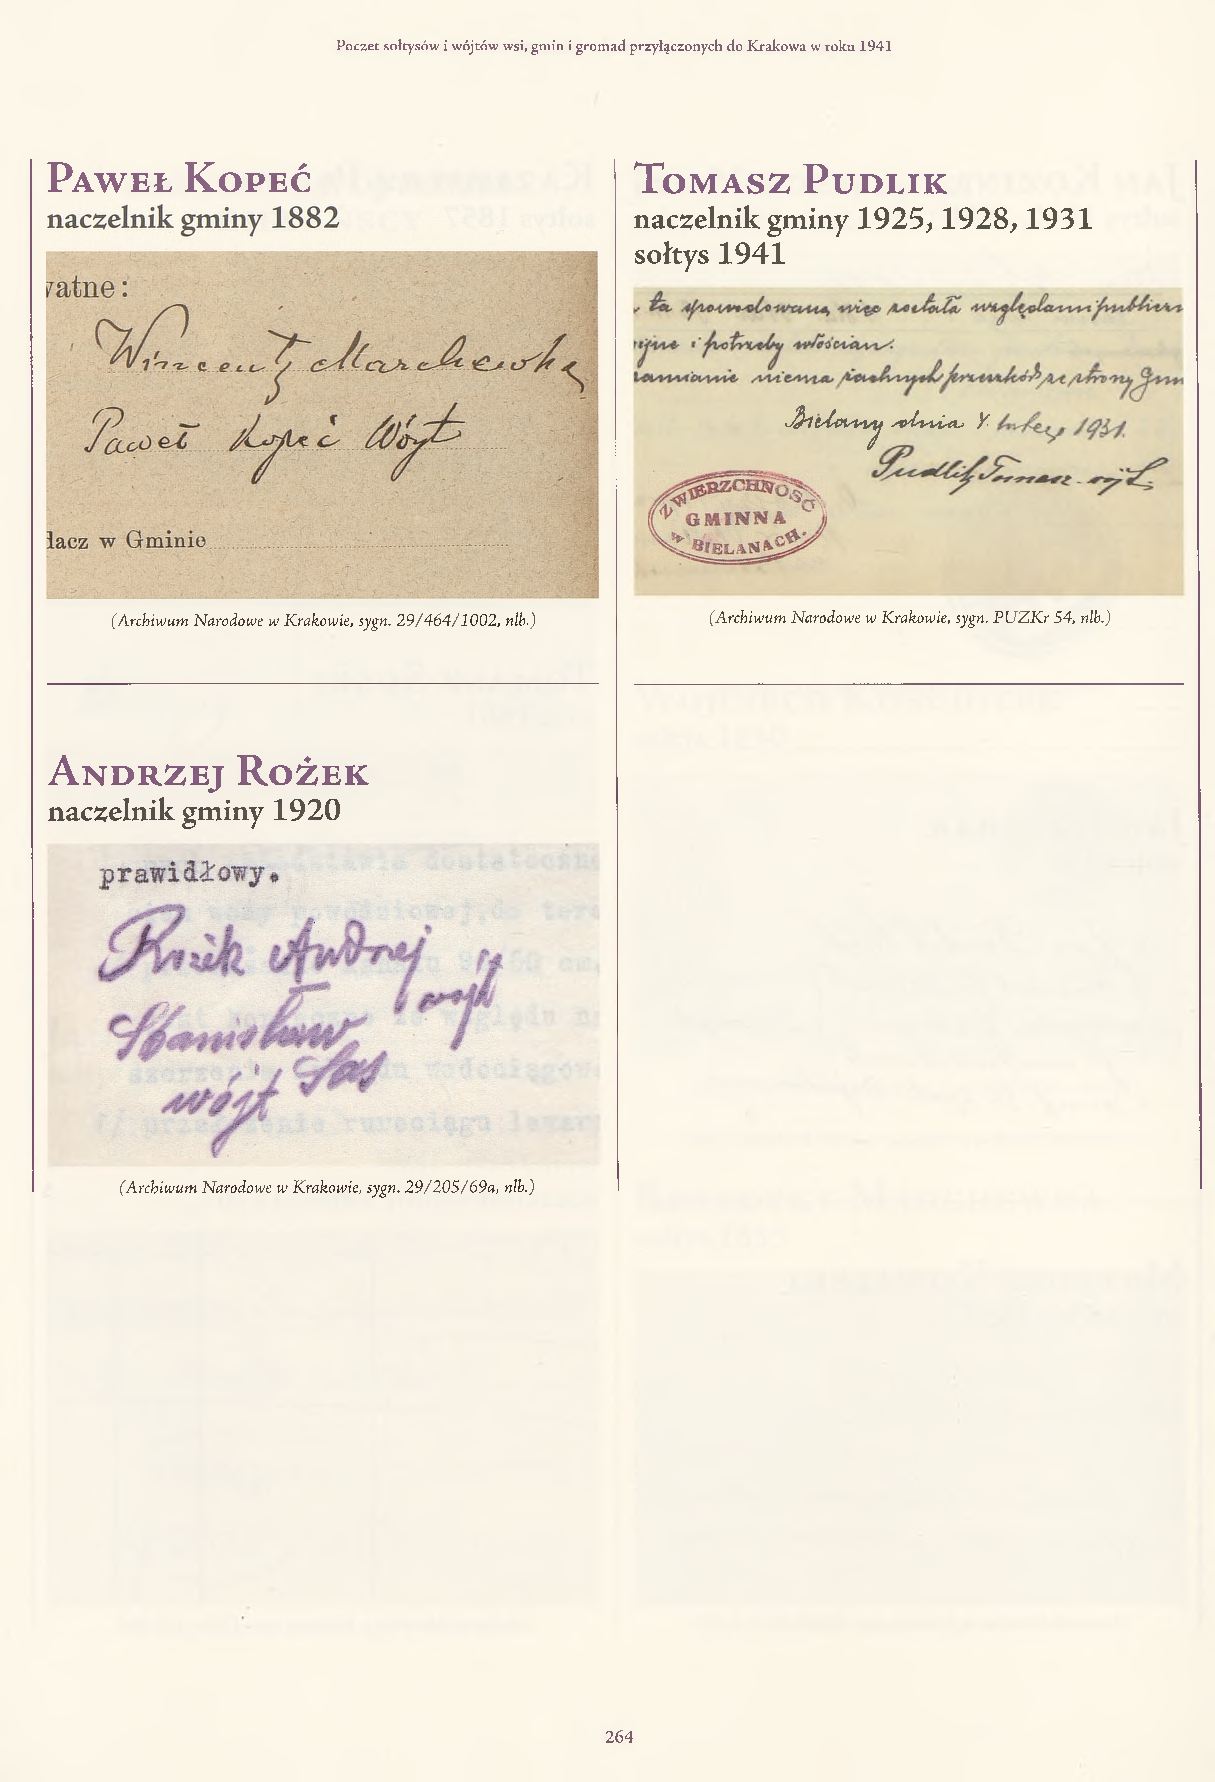 Poczet sołtysów i wójtów wsi, gmin i gromad przyłączonych do Krakowa w roku 1941
Paweł Kopeć
naczelnik gminy 1882
watne:
Wincenty Marchewka
Paweł Kopeć Wóyt
łacz w Gminie
(Archiwum Narodowe w Krakowie, sygn. 29/464/1002, nlb.)
Andrzej Rożek
naczelnik gminy 1920
prawidłowy.
Rożek Andrzej
wójt
Stanisław
Sas
wójt
(Archiwum Narodowe w Krakowie, sygn. 29/205/69a, nlb.)
Tomasz Pudlik
naczelnik gminy 1925, 1928, 1931
sołtys 1941
ta spowodowaną więc została względami publiczn
i potrzeby włościan.
zamianie niema żadnych przeszkód ze strony Gmi
Bielany dnia 4 lutego 1931.
Pudlik Tomasz
ZWIERZCHNOŚĆ
GMINNA
w BIELANACH.
(Archiwum Narodowe w Krakowie, sygn. PUZKr 54, nlb.)
264